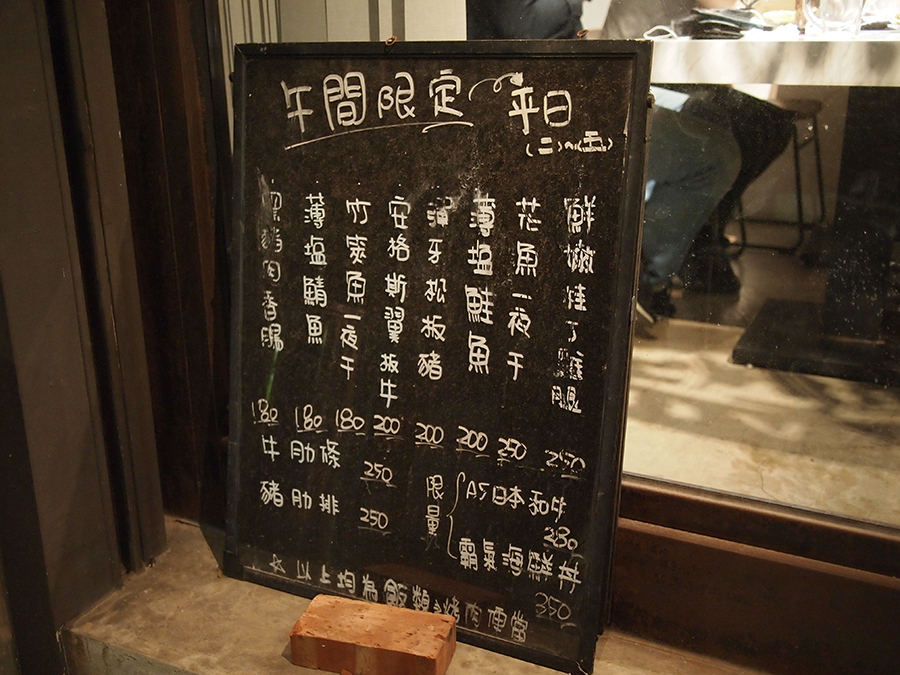 午間限定 平日
(二)~(五)
鮮嫩桂丁雞腿 250
花魚一夜干 250
薄塩鮭魚 200
牙松板豬 200
安格斯翼板牛 200
竹筴魚一夜干 180
薄塩鯖魚 180
豬肉香腸 180
牛肋條 250
豬肋排 250
限量
A5日本和牛 280
霸氣海鮮丼 350
☆以上均為飯類&烤肉便當